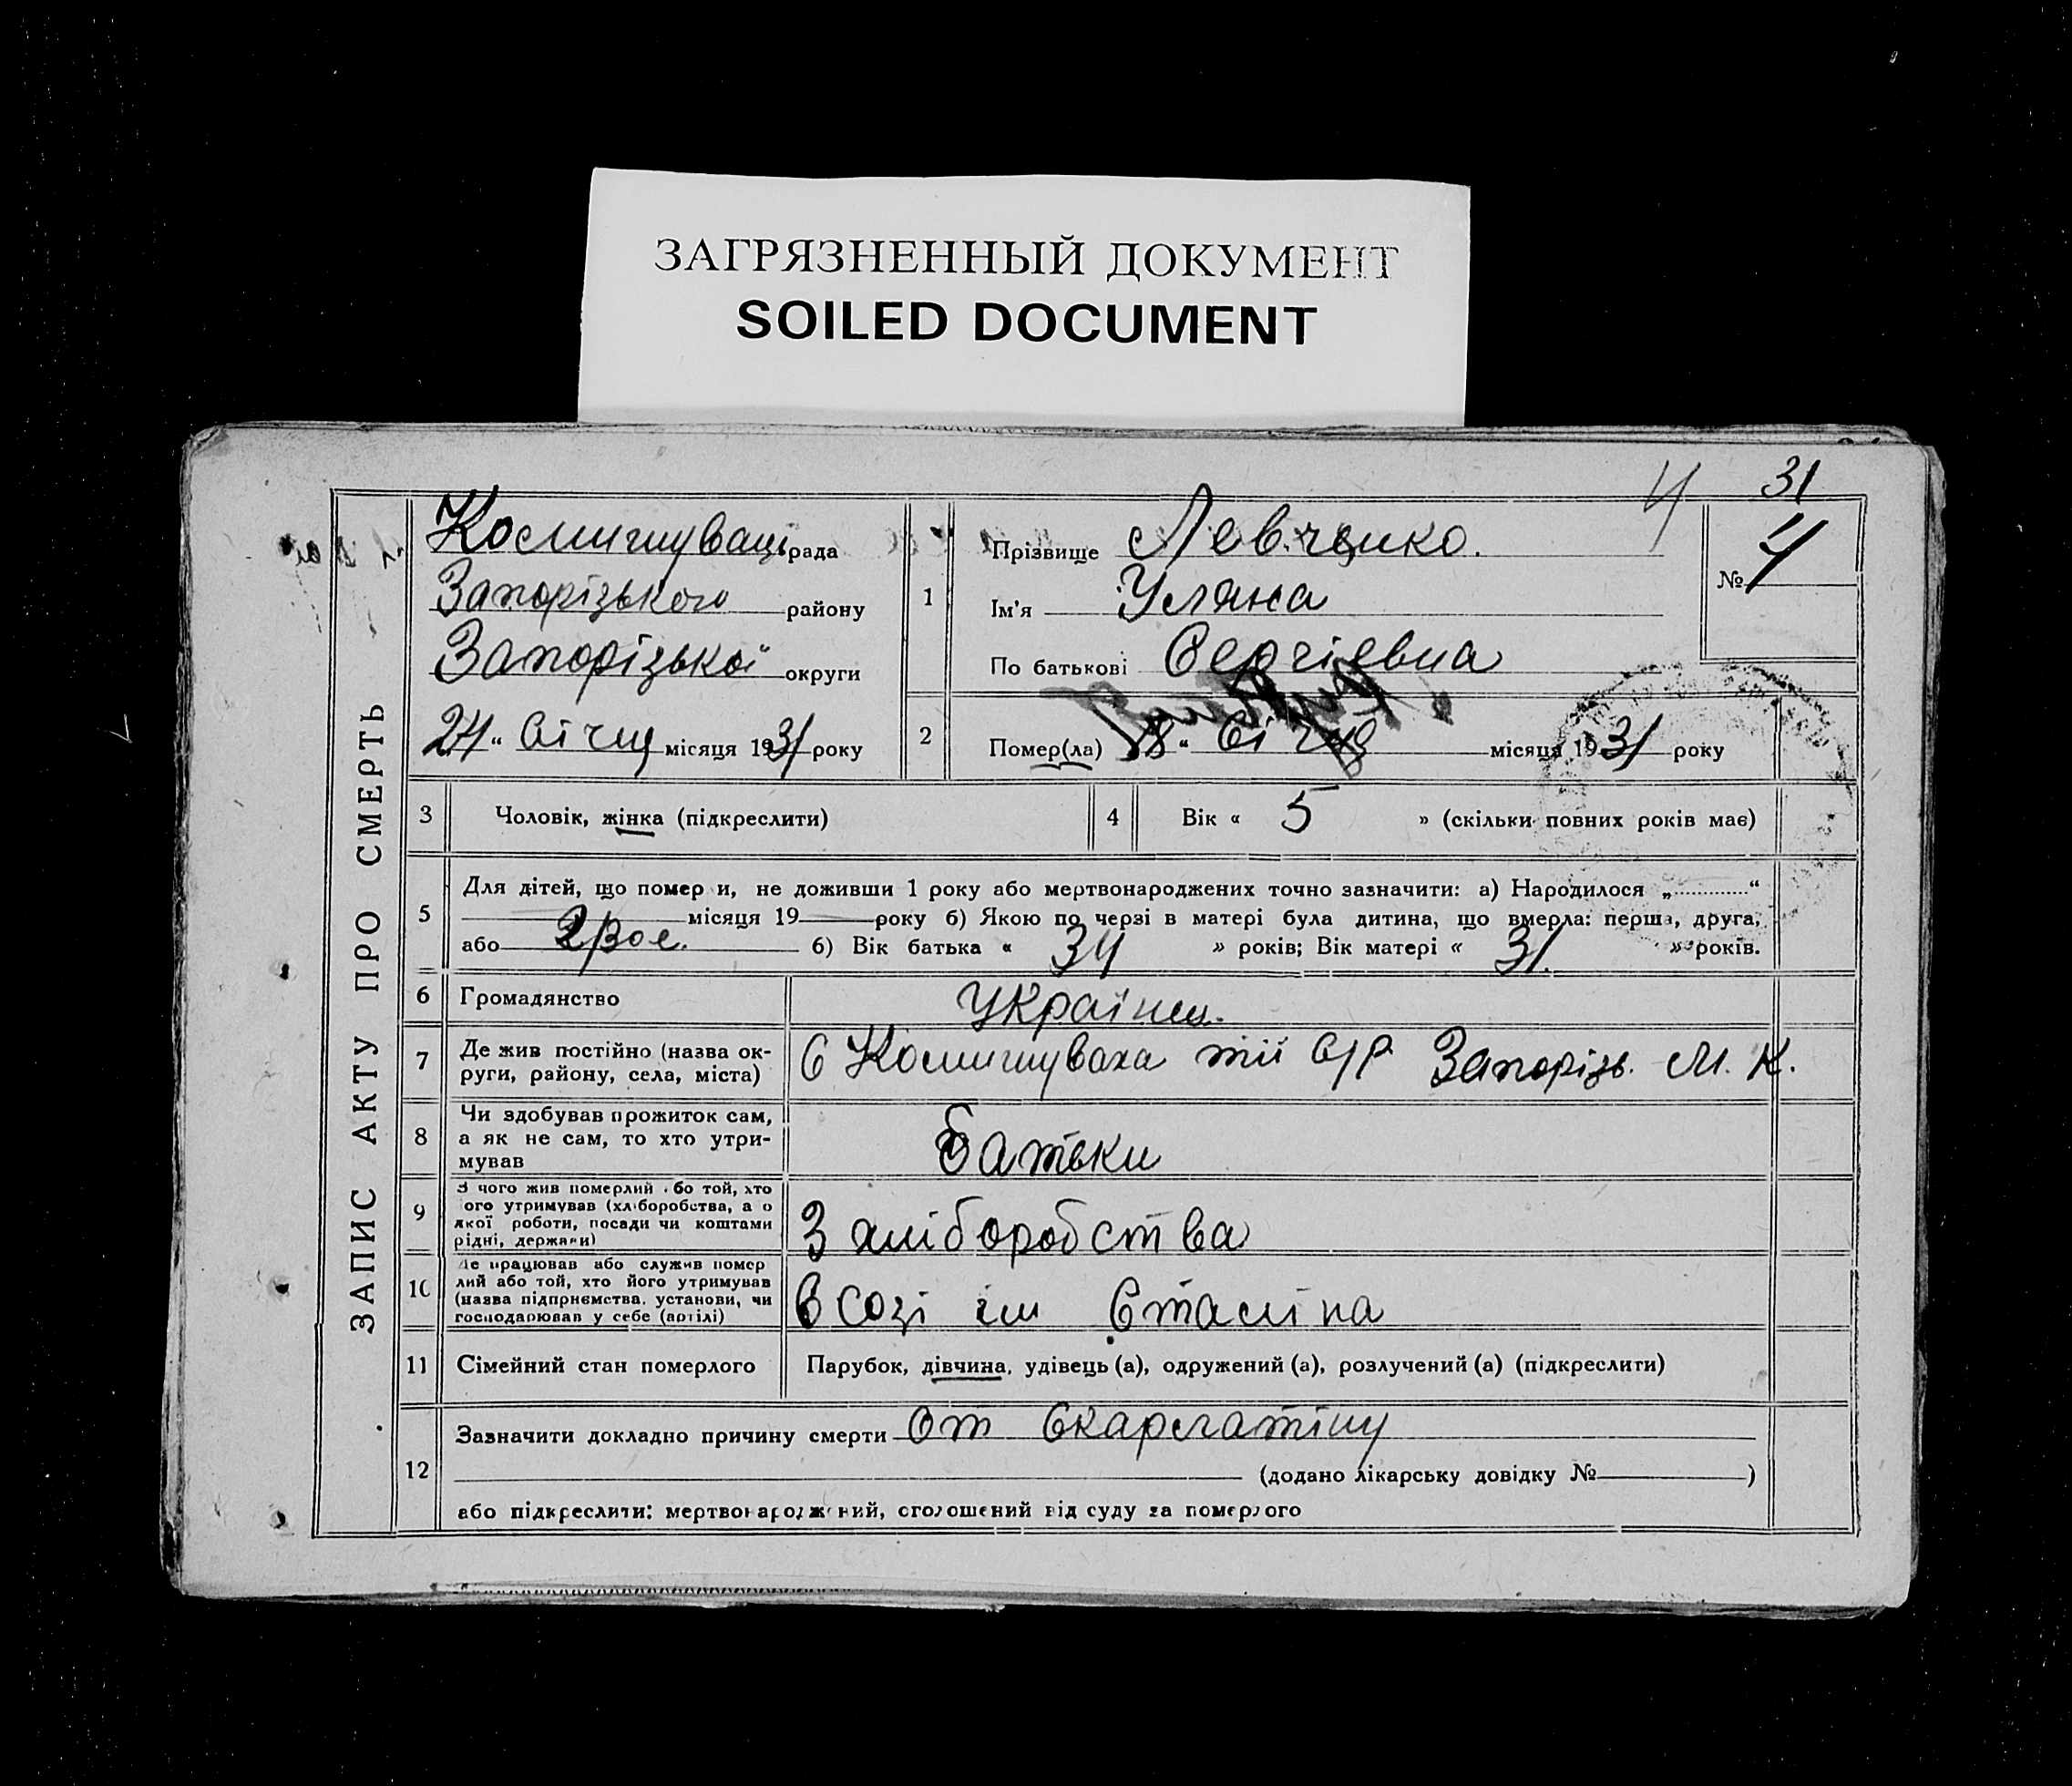 ЗАГРЯЗНЕННЫЙ ДОКУМЕНТ
SOILED DOCUMENT
4 31
ЗАПИС АКТУ ПРО СМЕРТЬ
Комишуваці рада
Запорізького району
Запорізької округи
24 " Січня місяця 1931 року
1
Прізвище Левченко.
Ім'я Уляна
По батькові Сергіевна
№ 4
2
Помер(ла) 18 " Січня місяця 1931 року
3 Чоловік, жінка (підкреслити)
4 Вік « 5 » (скільки повних років має)
5
Для дітей, що помер и, не доживши 1 року або мертвонароджених точно зазначити: а) Народилося „ “
місяця 19 року б) Якою по черзі в матері була дитина, що вмерла: перша, друга,
або 6) Вік батька « 34 » років; Вік матері « 31. » років.
6 Громадянство Україн.
7 Де жив постійно (назва ок-
руги, району, села, міста)
С Комишуваха тії С/Р. Запоріз. М. К.
8 Чи здобував прожиток сам,
а як не сам, то хто утри-
мував
Батьки
9 З чого жив померлий або той, хто
ого утримував (хліборобства, а о
якої роботи, посади чи коштами
рідні, держави)
З хліборобства
10 Де працював або служив помер
лий або той, хто його утримував
(назва підприємства, установи, чи
господарював у себе (артілі)
В Созі ім Сталіна
11 Сімейний стан померлого Парубок, дівчина, удівець (а), одружений (а), розлучений (а) (підкреслити)
12
Зазначити докладно причину смерти От Скарлатіни
(додано лікарську довідку № )
або підкреслити: мертвонароджений, оголошений від суду за померлого